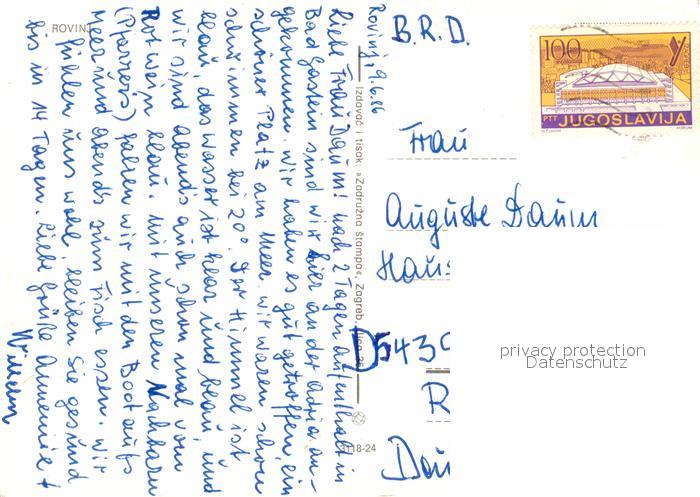 ROVINJ
Rovinj, 9.6.86
Liebe Frau Daum! Nach 2 Tagen Aufenthalt in
Bad Gastein sind wir hier an der Adria an-
gekommen. Wir haben es gut getroffen, ein
schöner Platz am Meer. Wir waren schon
schwimmen bei 20°. Der Himmel ist
blau, das Wasser ist klar und blau, und
wir sind abends auch schon mal vom
Rotwein blau. Mit unseren Nachbarn
(Pfarrers) fahren wir mit dem Boot aufs
Meer und abends zum Fisch essen. Wir
fühlen uns wohl, bleiben Sie gesund
bis in 14 Tagen. Liebe Grüße Annemie +
Willem
Izdavač i tisak: »Zadružna štampa«, Zagreb,
118-24
B.R.D.
100
PTT JUGOSLAVIJA
Frau
Auguste Daum
Haus
D 5439
R
Dau
privacy protection
Datenschutz